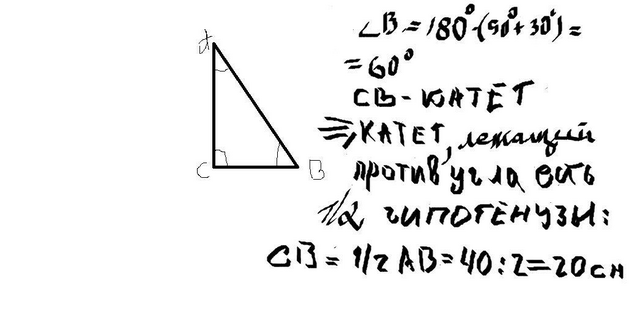 ∠B = 180° - (90° + 30°) =
= 60°
A
CB - КАТЕТ
⇒, КАТЕТ, лежащий
C
B
против угла есть
1/2 гипотенузы:
CB = 1/2 AB = 40 : 2 = 20 см